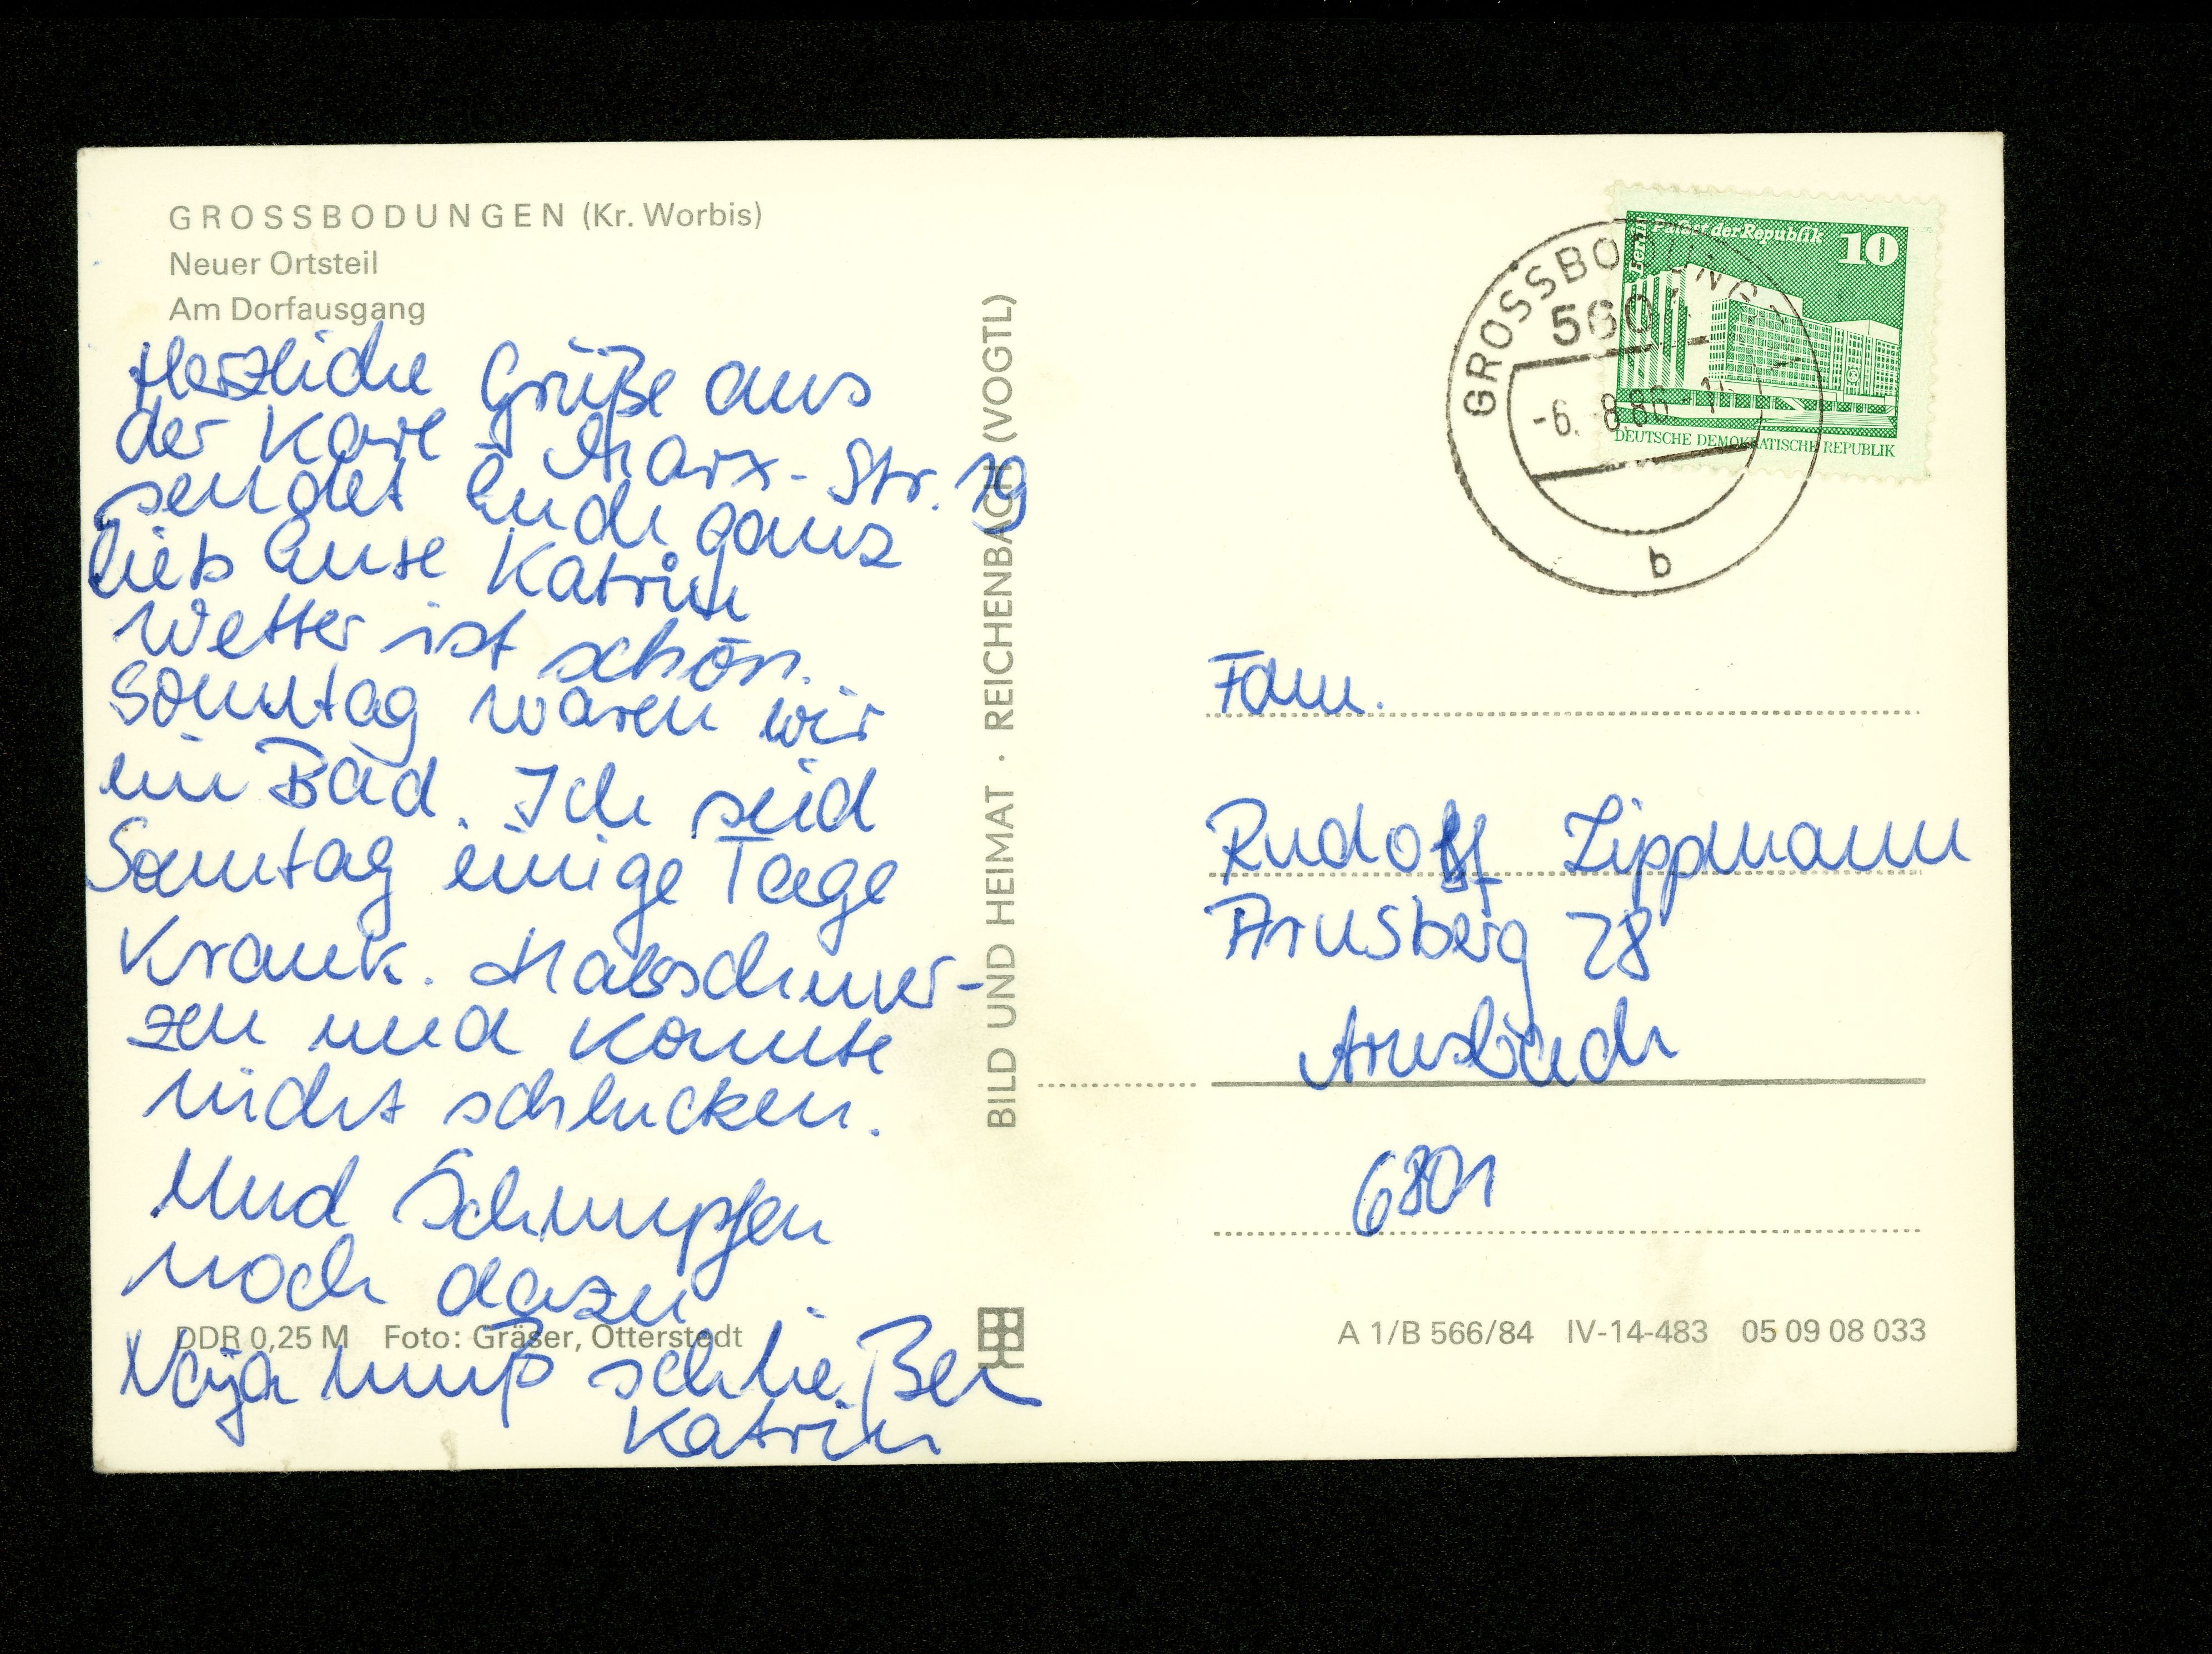 GROSSBODUNGEN (Kr. Worbis)
Neuer Ortsteil
Am Dorfausgang
Herzliche Grüße aus
der Karl Marx-Str. 19
sendet Euch ganz
lieb Eure Katrin
Wetter ist schön.
Sonntag waren wir
im Bad. Ich seid
Sonntag einige Tage
Krank. Halsschmer-
zen und konnte
nicht schlucken.
Und Schnupfen
noch dazu
Naja muß schließen
Katrin
DDR 0,25 M Foto: Gräser, Otterstedt
BILD UND HEIMAT · REICHENBACH (VOGTL)
Berlin Palast der Republik 10
DEUTSCHE DEMOKRATISCHE REPUBLIK
GROSSBODUNG
560
-6. 8.86-
b
Fam.
Rudolf Lippmann
Arnsberg 28
Arnsbach
6801
A 1/B 566/84 IV-14-483 05 09 08 033